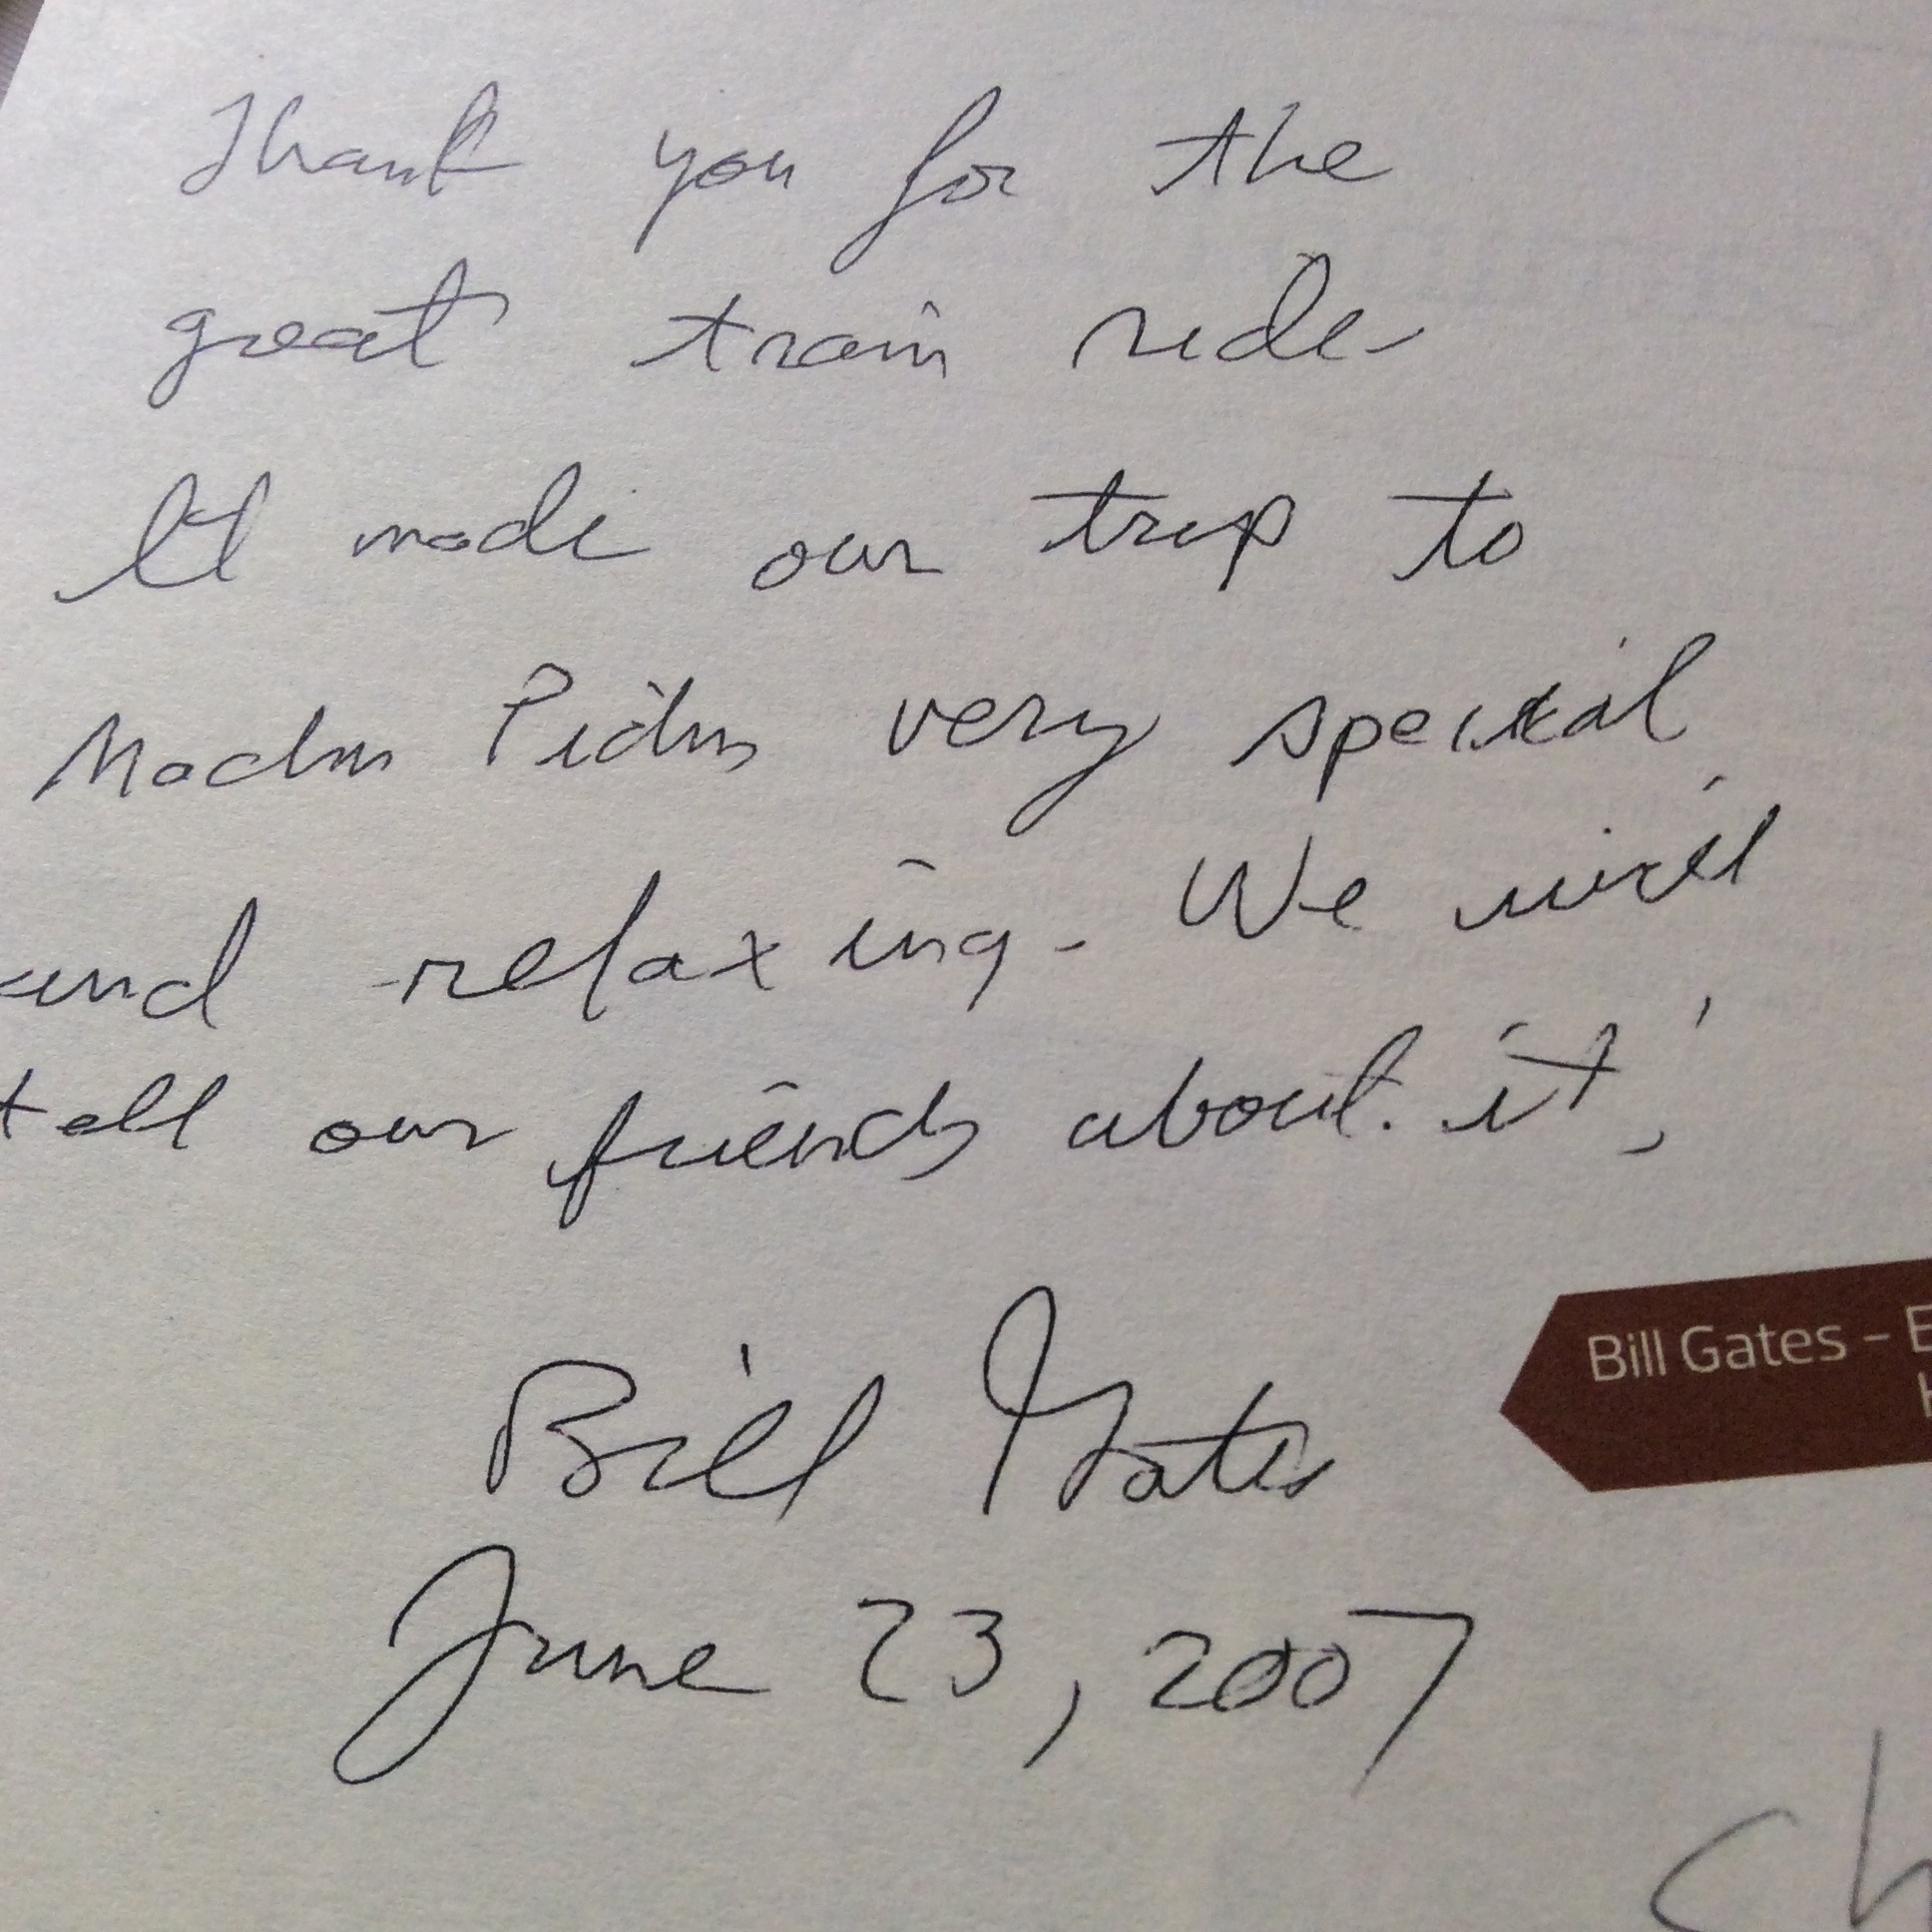 Thank you for the
great train ride
It made our trip to
Machu Pichu very special
and relaxing. We will
tell our friends about it!
Bill Gates
June 23, 2007
Bill Gates – E
H
Ch